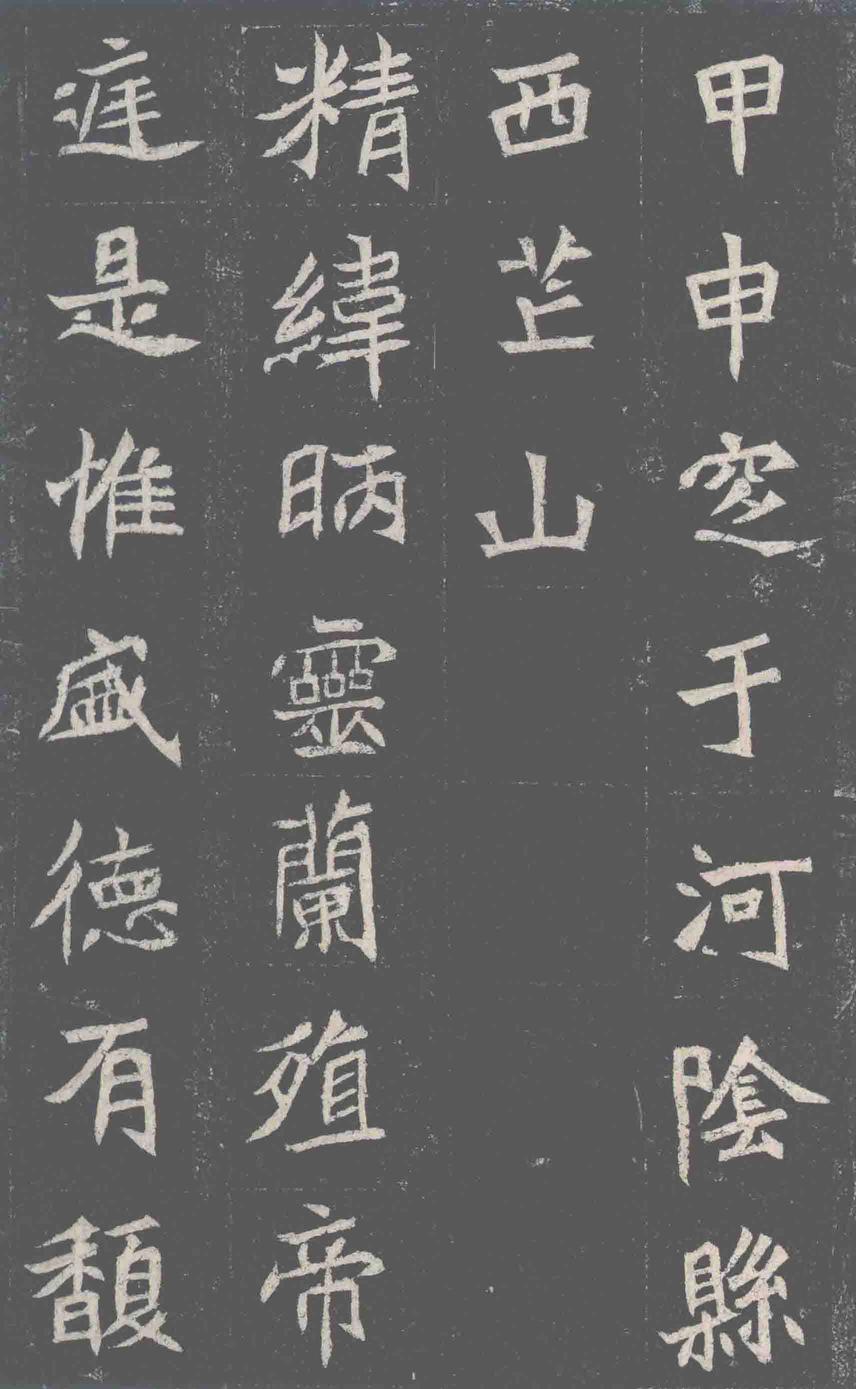 甲申窆于河陰縣
西芒山
精緯昞靈蘭殖帝
庭是惟盛德有馥